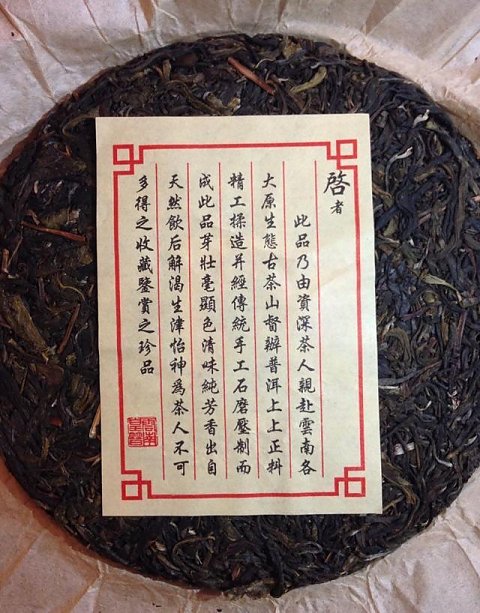 啓者
此品乃由資深茶人親赴雲南各
大原生態古茶山督辦普洱上上正料
精工揉造并經傳統手工石磨壓制而
成此品芽壯毫顯色清味純芳香出自
天然飲后解渴生津怡神為茶人不可
多得之收藏鑒賞之珍品